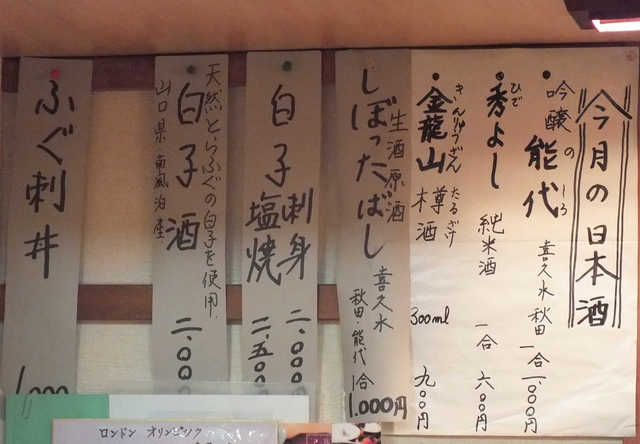 今月の日本酒
吟醸の能代
しろ
喜久水 秋田 一合 一、〇〇〇円
ひで
秀よし 純米酒 一合 六〇〇円
きんりゅうざん たるざけ
金龍山 樽酒 300ml 九〇〇円
生酒原酒
しぼったばし
喜久水
秋田・能代
1合
1.000円
白子 刺身 二、〇〇〇
塩焼 二、五〇〇
天然とらふぐの白子を使用.
白子酒 二、〇〇
山口県・南風泊産
ふぐ刺丼
1,000
ロンドン オリンピック